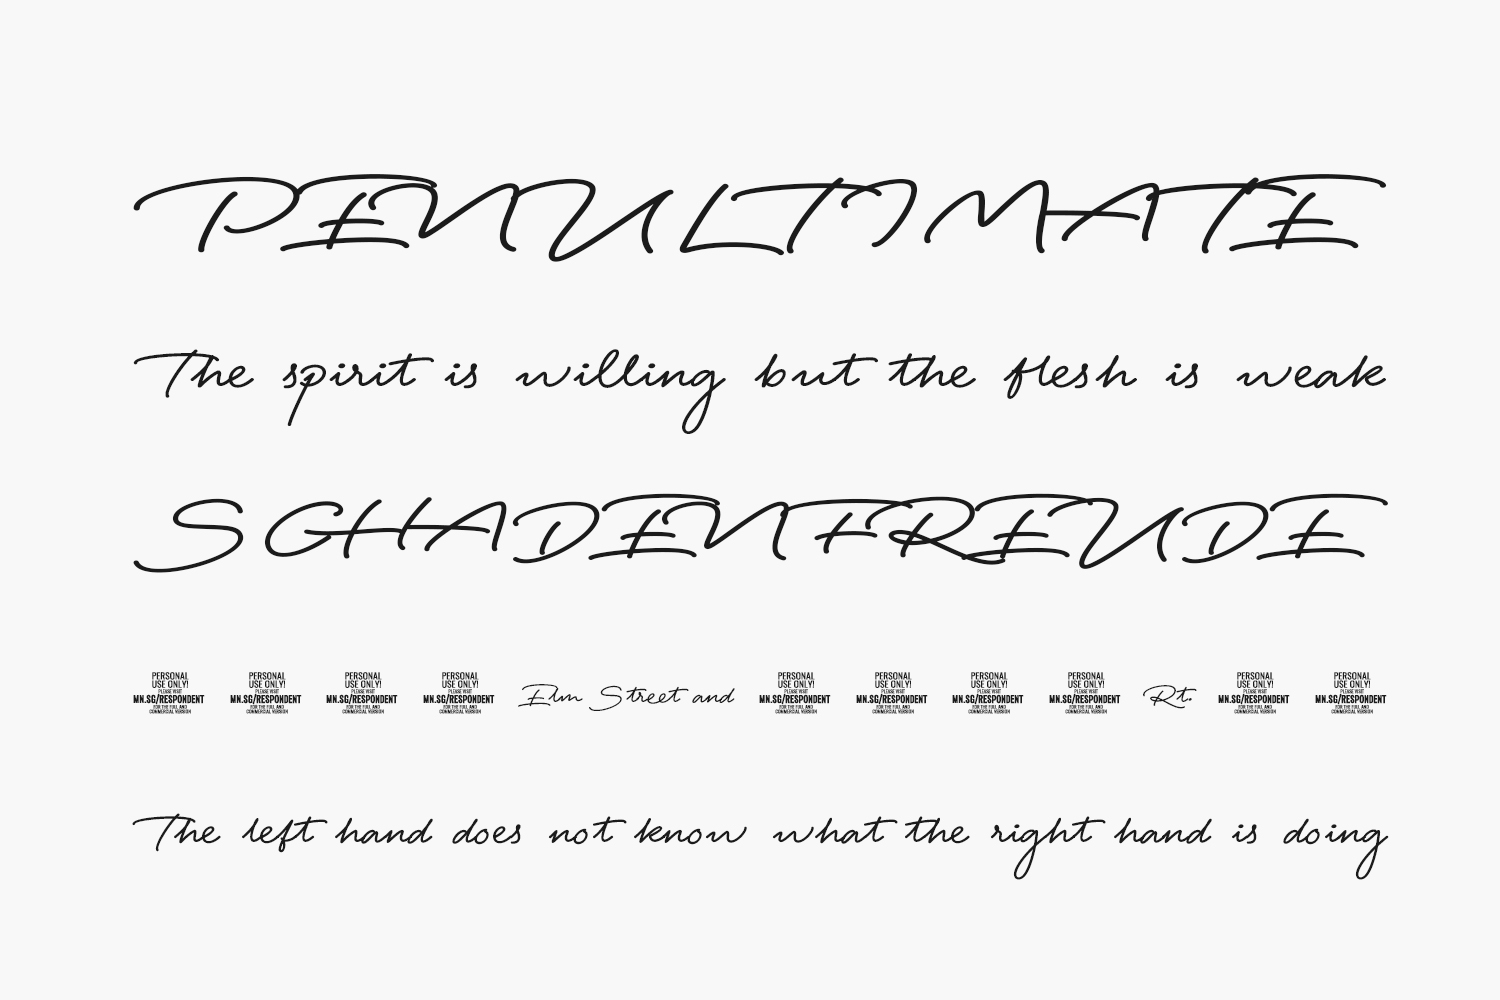 PENULTIMATE
The spirit is willing but the flesh is weak
SCHADENFREUDE
PERSONAL USE ONLY! PLEASE VISIT MN.SG/RESPONDENT FOR THE FULL AND COMMERCIAL VERSION PERSONAL USE ONLY! PLEASE VISIT MN.SG/RESPONDENT FOR THE FULL AND COMMERCIAL VERSION PERSONAL USE ONLY! PLEASE VISIT MN.SG/RESPONDENT FOR THE FULL AND COMMERCIAL VERSION PERSONAL USE ONLY! PLEASE VISIT MN.SG/RESPONDENT FOR THE FULL AND COMMERCIAL VERSION Elm Street and PERSONAL USE ONLY! PLEASE VISIT MN.SG/RESPONDENT FOR THE FULL AND COMMERCIAL VERSION PERSONAL USE ONLY! PLEASE VISIT MN.SG/RESPONDENT FOR THE FULL AND COMMERCIAL VERSION PERSONAL USE ONLY! PLEASE VISIT MN.SG/RESPONDENT FOR THE FULL AND COMMERCIAL VERSION PERSONAL USE ONLY! PLEASE VISIT MN.SG/RESPONDENT FOR THE FULL AND COMMERCIAL VERSION Rt. PERSONAL USE ONLY! PLEASE VISIT MN.SG/RESPONDENT FOR THE FULL AND COMMERCIAL VERSION PERSONAL USE ONLY! PLEASE VISIT MN.SG/RESPONDENT FOR THE FULL AND COMMERCIAL VERSION
The left hand does not know what the right hand is doing